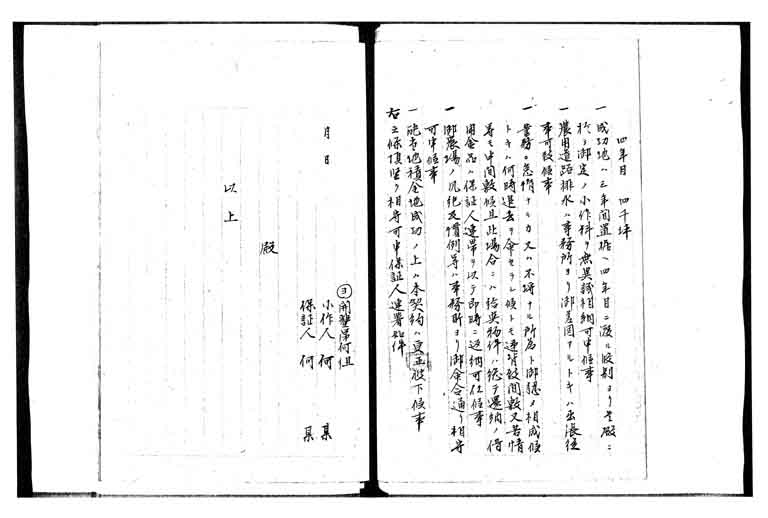 四年目 四千坪
一 成功地ハ三年間置据ヘ四年目ニ至レ收穫ヨリ貴殿ニ
於テ御定ノ小作料ヲ無異議相納可申候事
一 農用道路排水ハ事務所ヨリ御差図アルトキハ出張従
事可致候事
一 業務ニ怠惰ナルカ又ハ不埒ナル所為ト御認メ相成候
トキハ何時退去ヲ命セラレ候トモ違背致間敷又苦情
等モ申間敷候且此場合ニハ給与物件ハ総テ還納ノ借
用金品ハ保証人連帯ヲ以テ即時ニ返納可仕候事
一 御農場ノ規紀及慣例等ハ事務所ヨリ御命令通リ相守
可申候事
一 配当地積全地成功ノ上ハ本契約ハ更正被下候事
右之條項堅ク相守可申保証人連署如件
月 日
開墾第何組
小作人 何 某
保証人 何 某
殿
以上